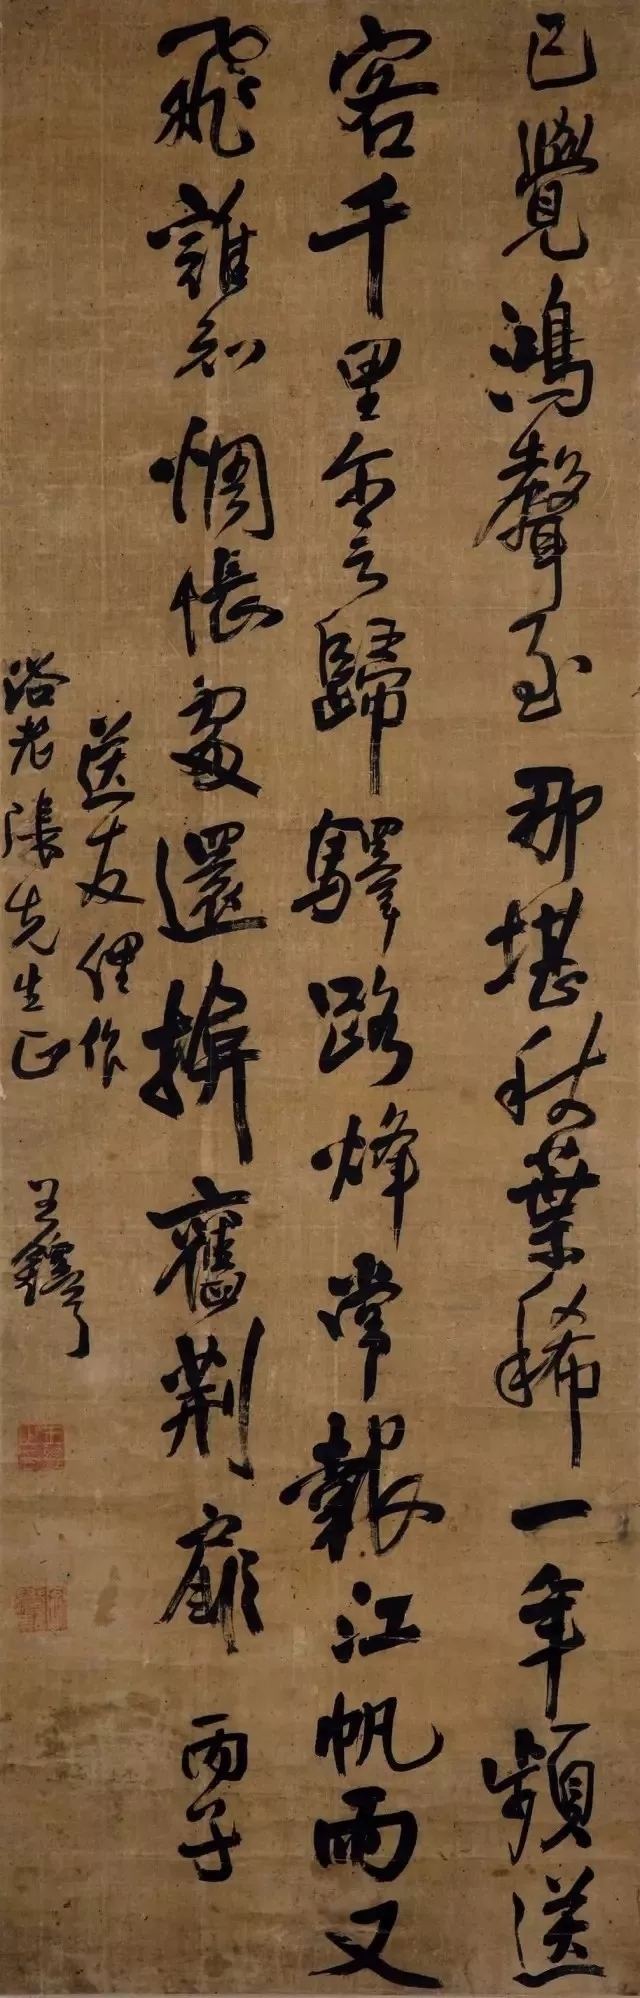 已覺鴻聲至那堪秋葉稀一年頻送
客千里尔言歸驛路烽常報江帆雨又
飛誰知惆悵處還揜舊荆扉 丙子
送友俚作
老張先生正 王鐸